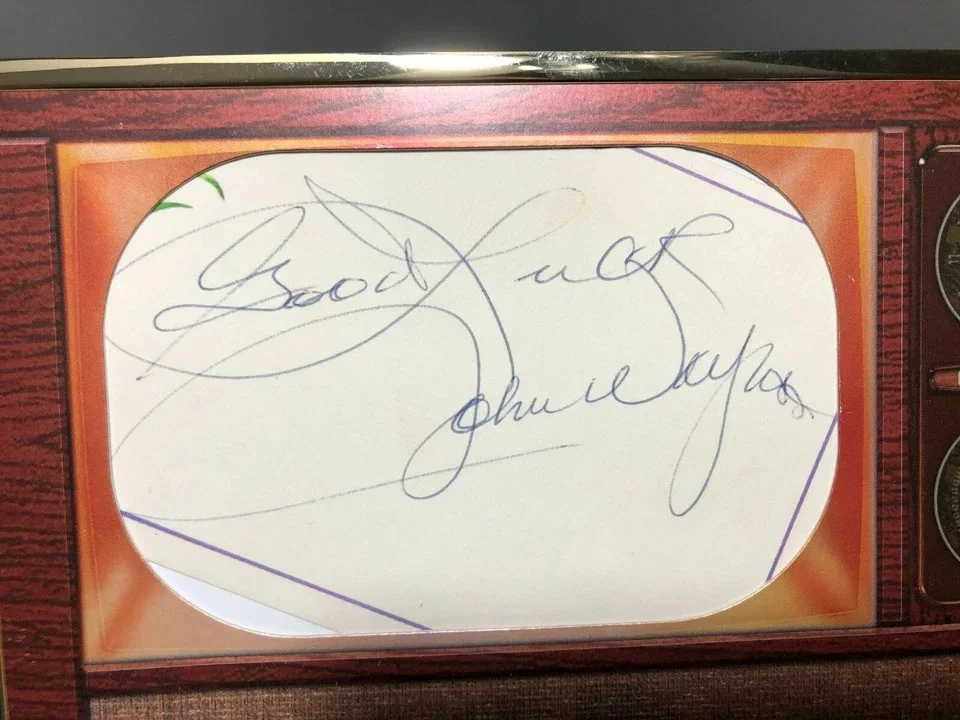 Good Luck
John Wayne